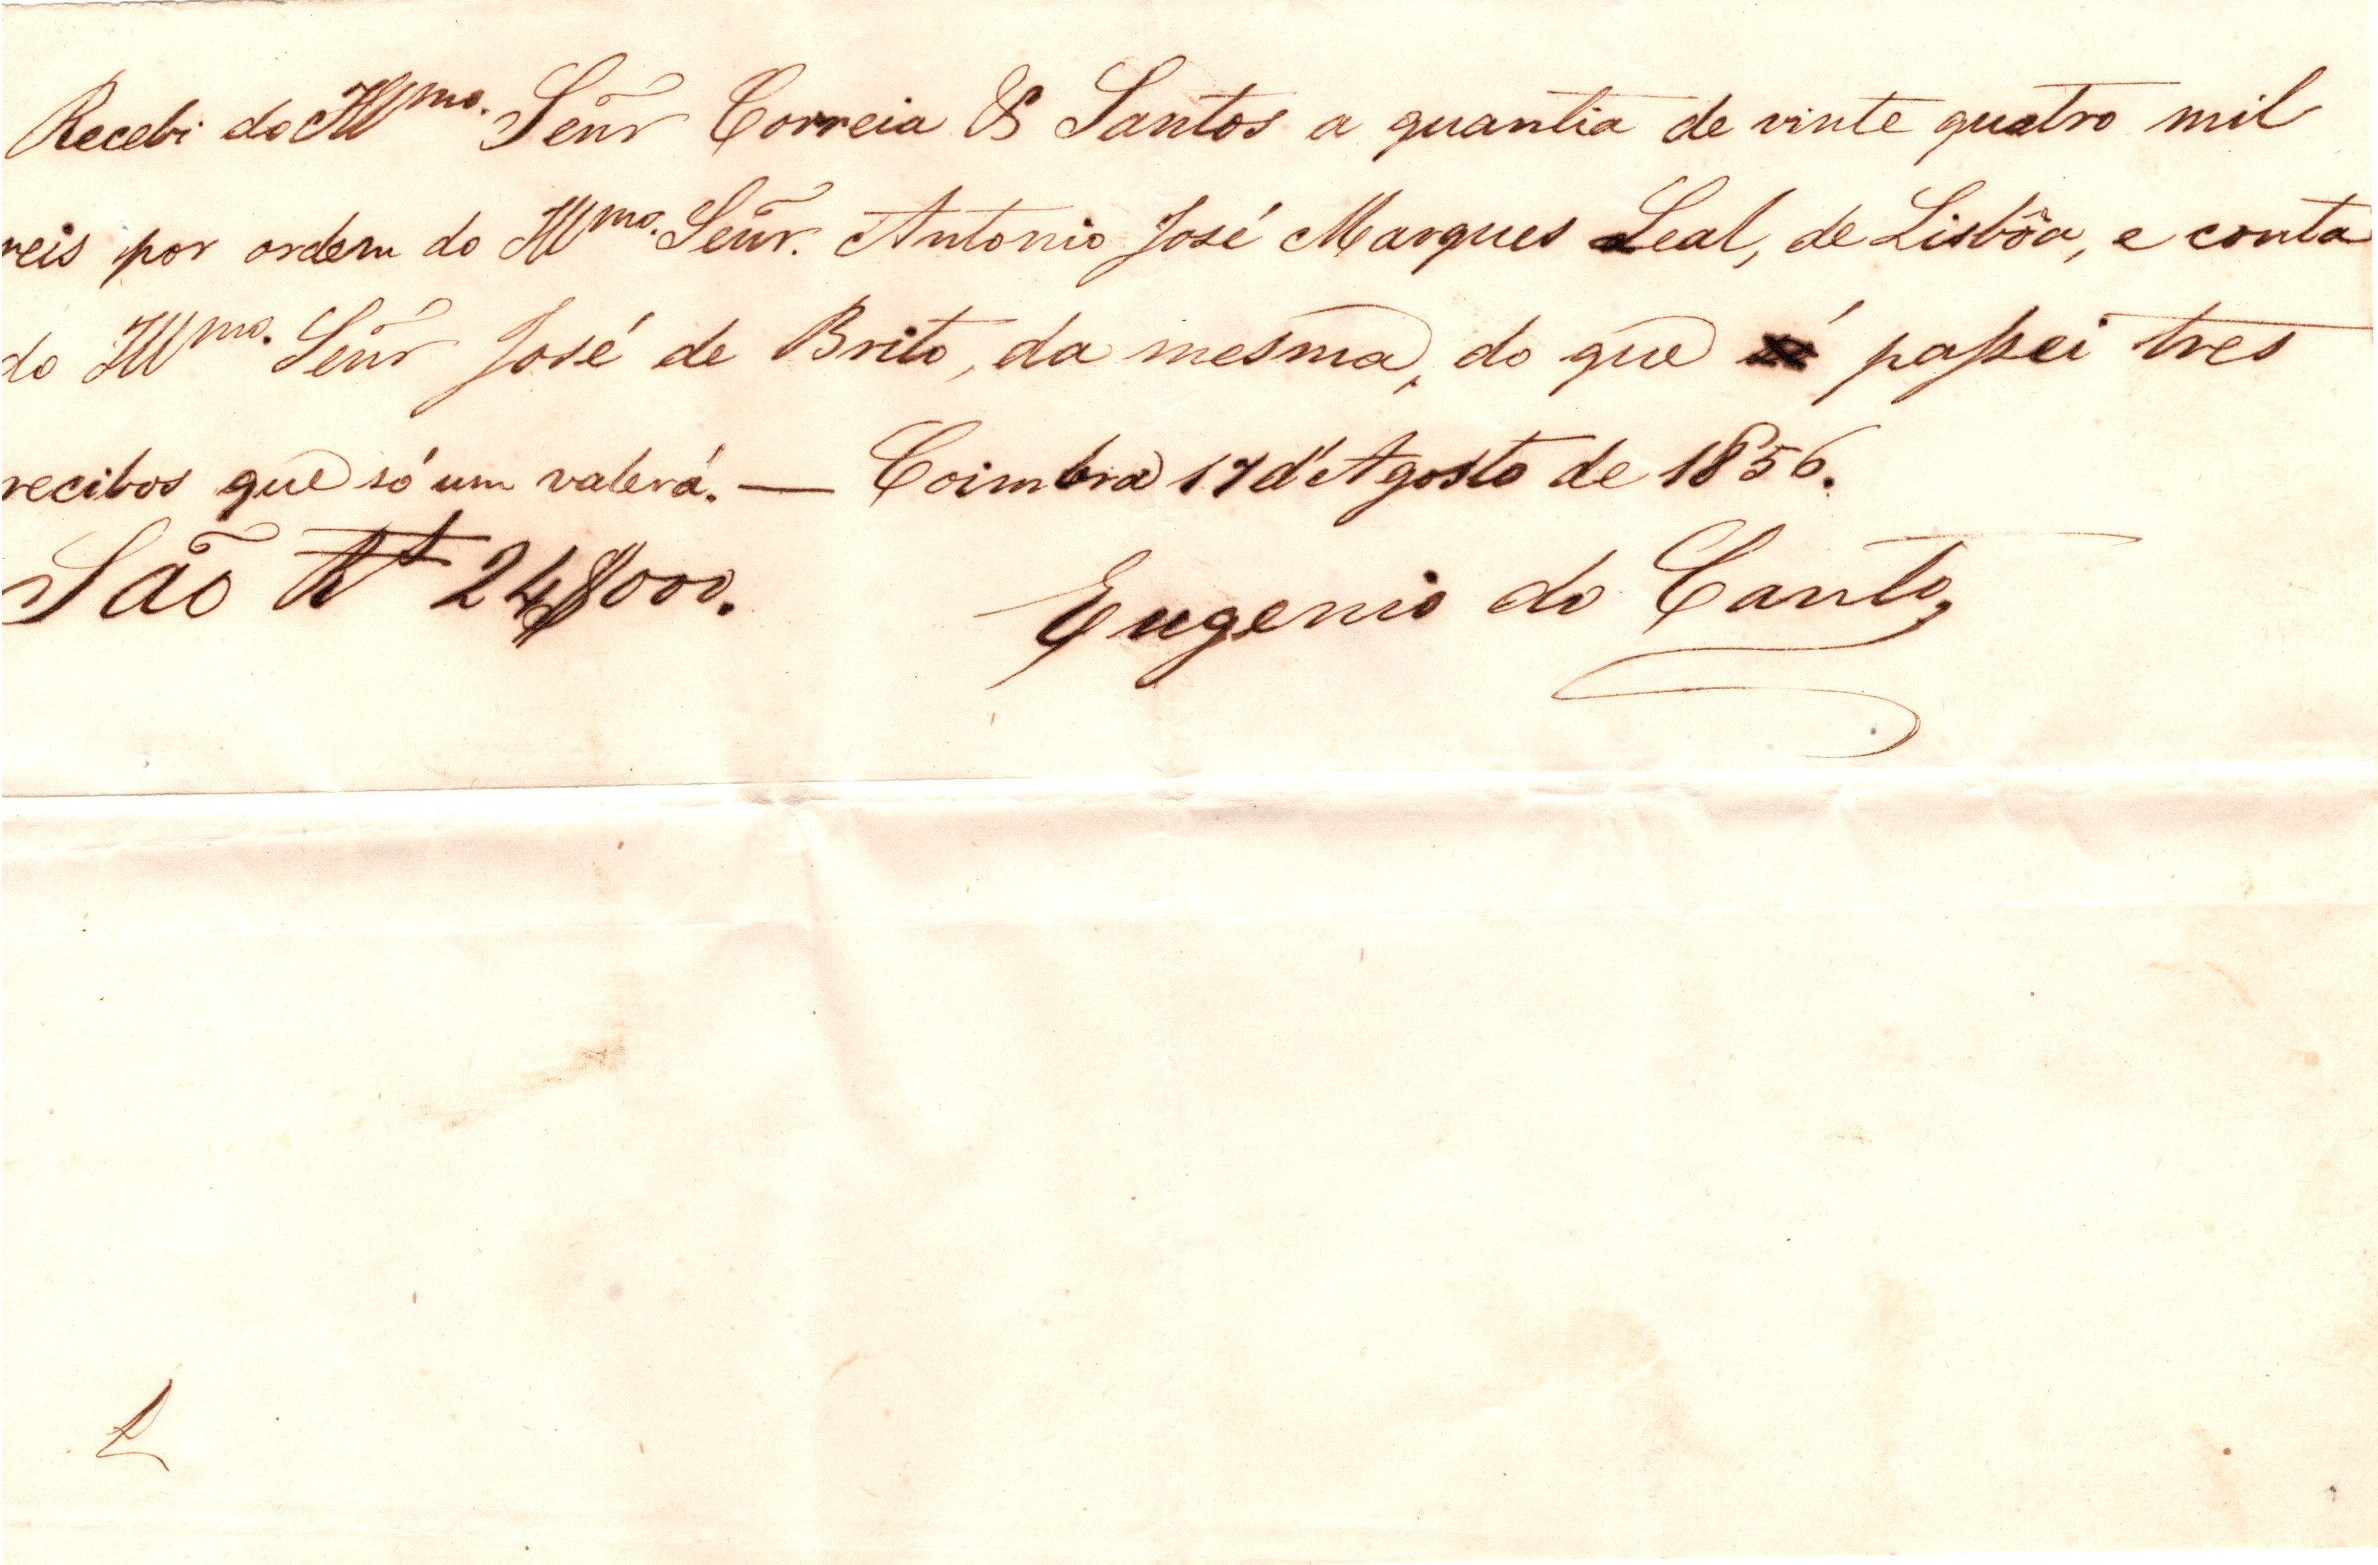 Recebi do Illmo. Señr Correia & Santos a quantia de vinte quatro mil
reis por ordem do Illmo. Señr. Antonio José Marques Leal, de Lisbôa, e conta
do Illmo. Señr José de Brito, da mesma, do que passei tres
recibos que só um valerá. — Coimbra 17 d'Agosto de 1856.
São Rs 24$000.
Eugenio do Canto